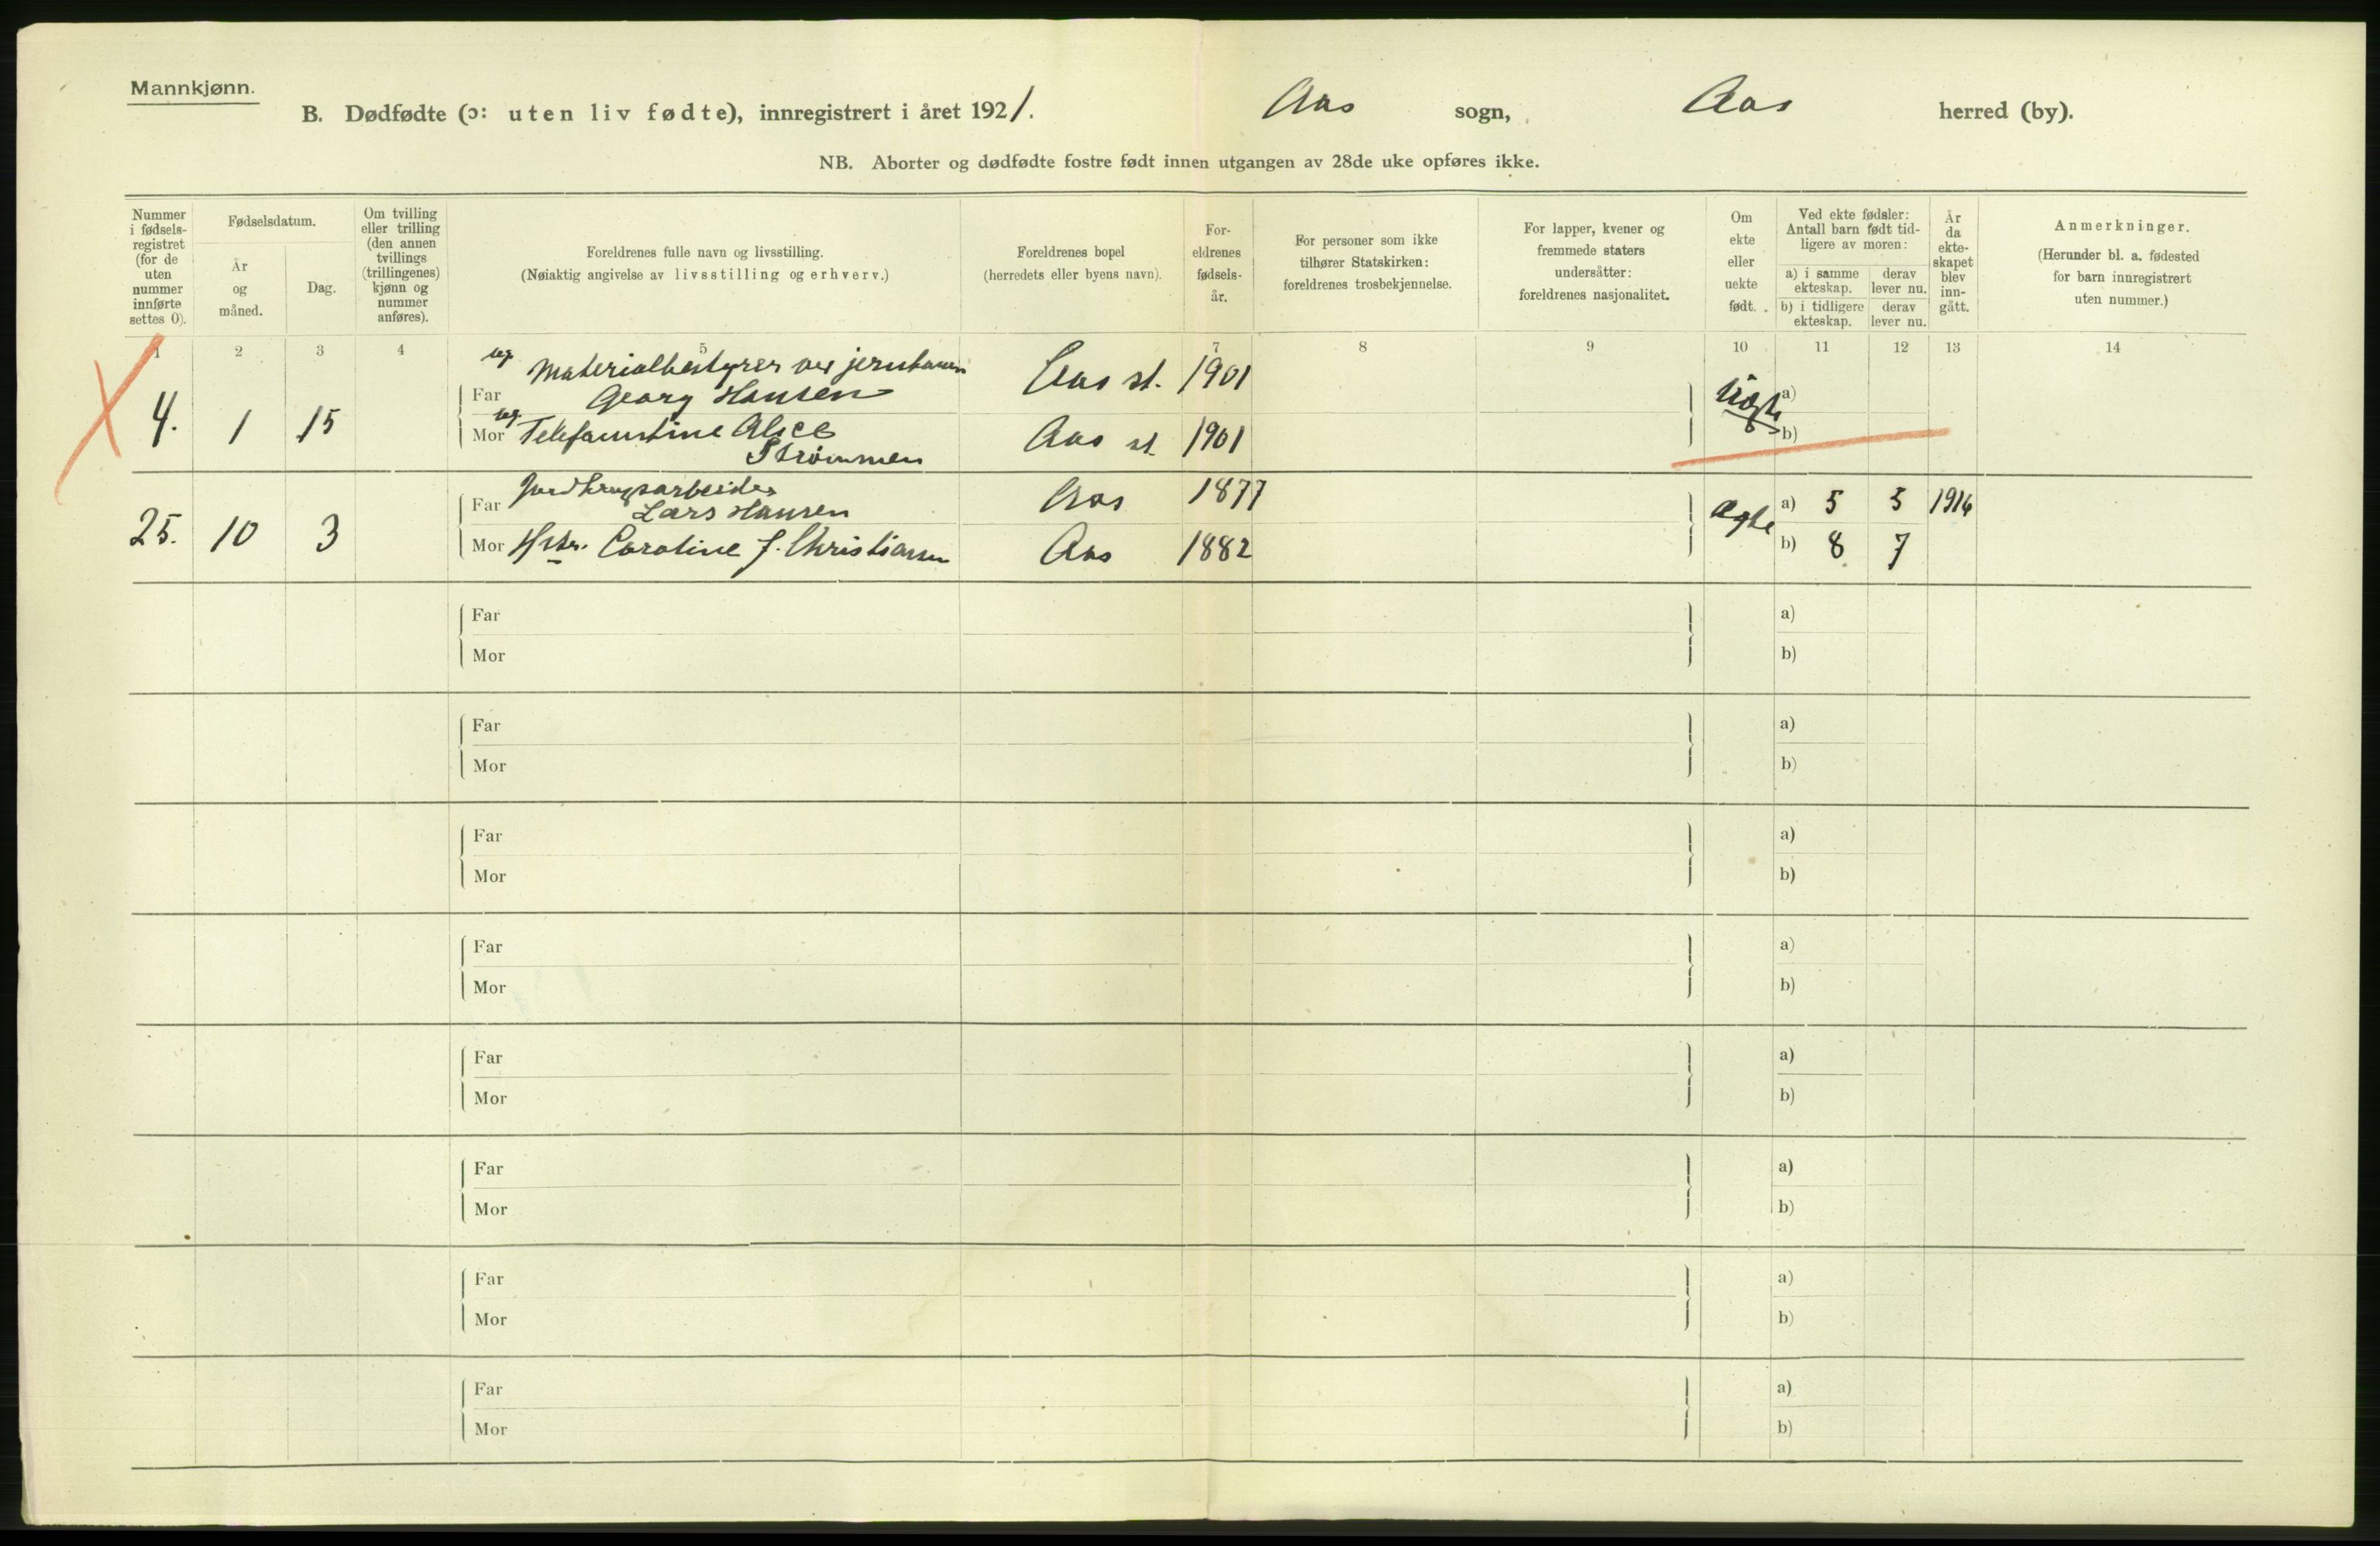 Mannkjønn.
B. Dødfødte (ɔ: uten liv fødte), innregistrert i året 1921. Aas sogn, Aas herred (by).
NB. Aborter og dødfødte fostre født innen utgangen av 28de uke opføres ikke.
Nummer i fødsels- registret (for de uten nummer innførte settes 0).
Fødselsdatum.
År og måned.
Dag.
Om tvilling eller trilling (den annen tvillings (trillingenes) kjønn og nummer anføres).
Foreldrenes fulle navn og livsstilling.
(Nøiaktig angivelse av livsstilling og erhverv.)
Foreldrenes bopel
(herredets eller byens navn).
For- eldrenes fødsels- år.
For personer som ikke tilhører Statskirken: foreldrenes trosbekjennelse.
For lapper, kvener og fremmede staters undersåtter: foreldrenes nasjonalitet.
Om ekte eller uekte født.
Ved ekte fødsler: Antall barn født tid- ligere av moren:
a) i samme ekteskap.
derav lever nu.
b) i tidligere ekteskap.
derav lever nu.
År da ekte- skapet blev inn- gått.
Anmerkninger.
(Herunder bl. a. fødested for barn innregistrert uten nummer.)
1 2 3 4 5 7 8 9 10 11 12 13 14
ug. Materialbestyrer ved jernbanen
4. 1 15 Far Georg Hansen Aas st. 1901 Uægte a)
Mor ug. Telefonistine Alice Aas st. 1901 b)
Strømmen
Jordbrugsarbeider
25. 10 3 Far Lars Hansen Aas 1877 ægte a) 5 5 1916
Mor Hstr. Caroline J. Christiansen Aas 1882 b) 8 7
Far a)
Mor b)
Far a)
Mor b)
Far a)
Mor b)
Far a)
Mor b)
Far a)
Mor b)
Far a)
Mor b)
Far a)
Mor b)
Far a)
Mor b)